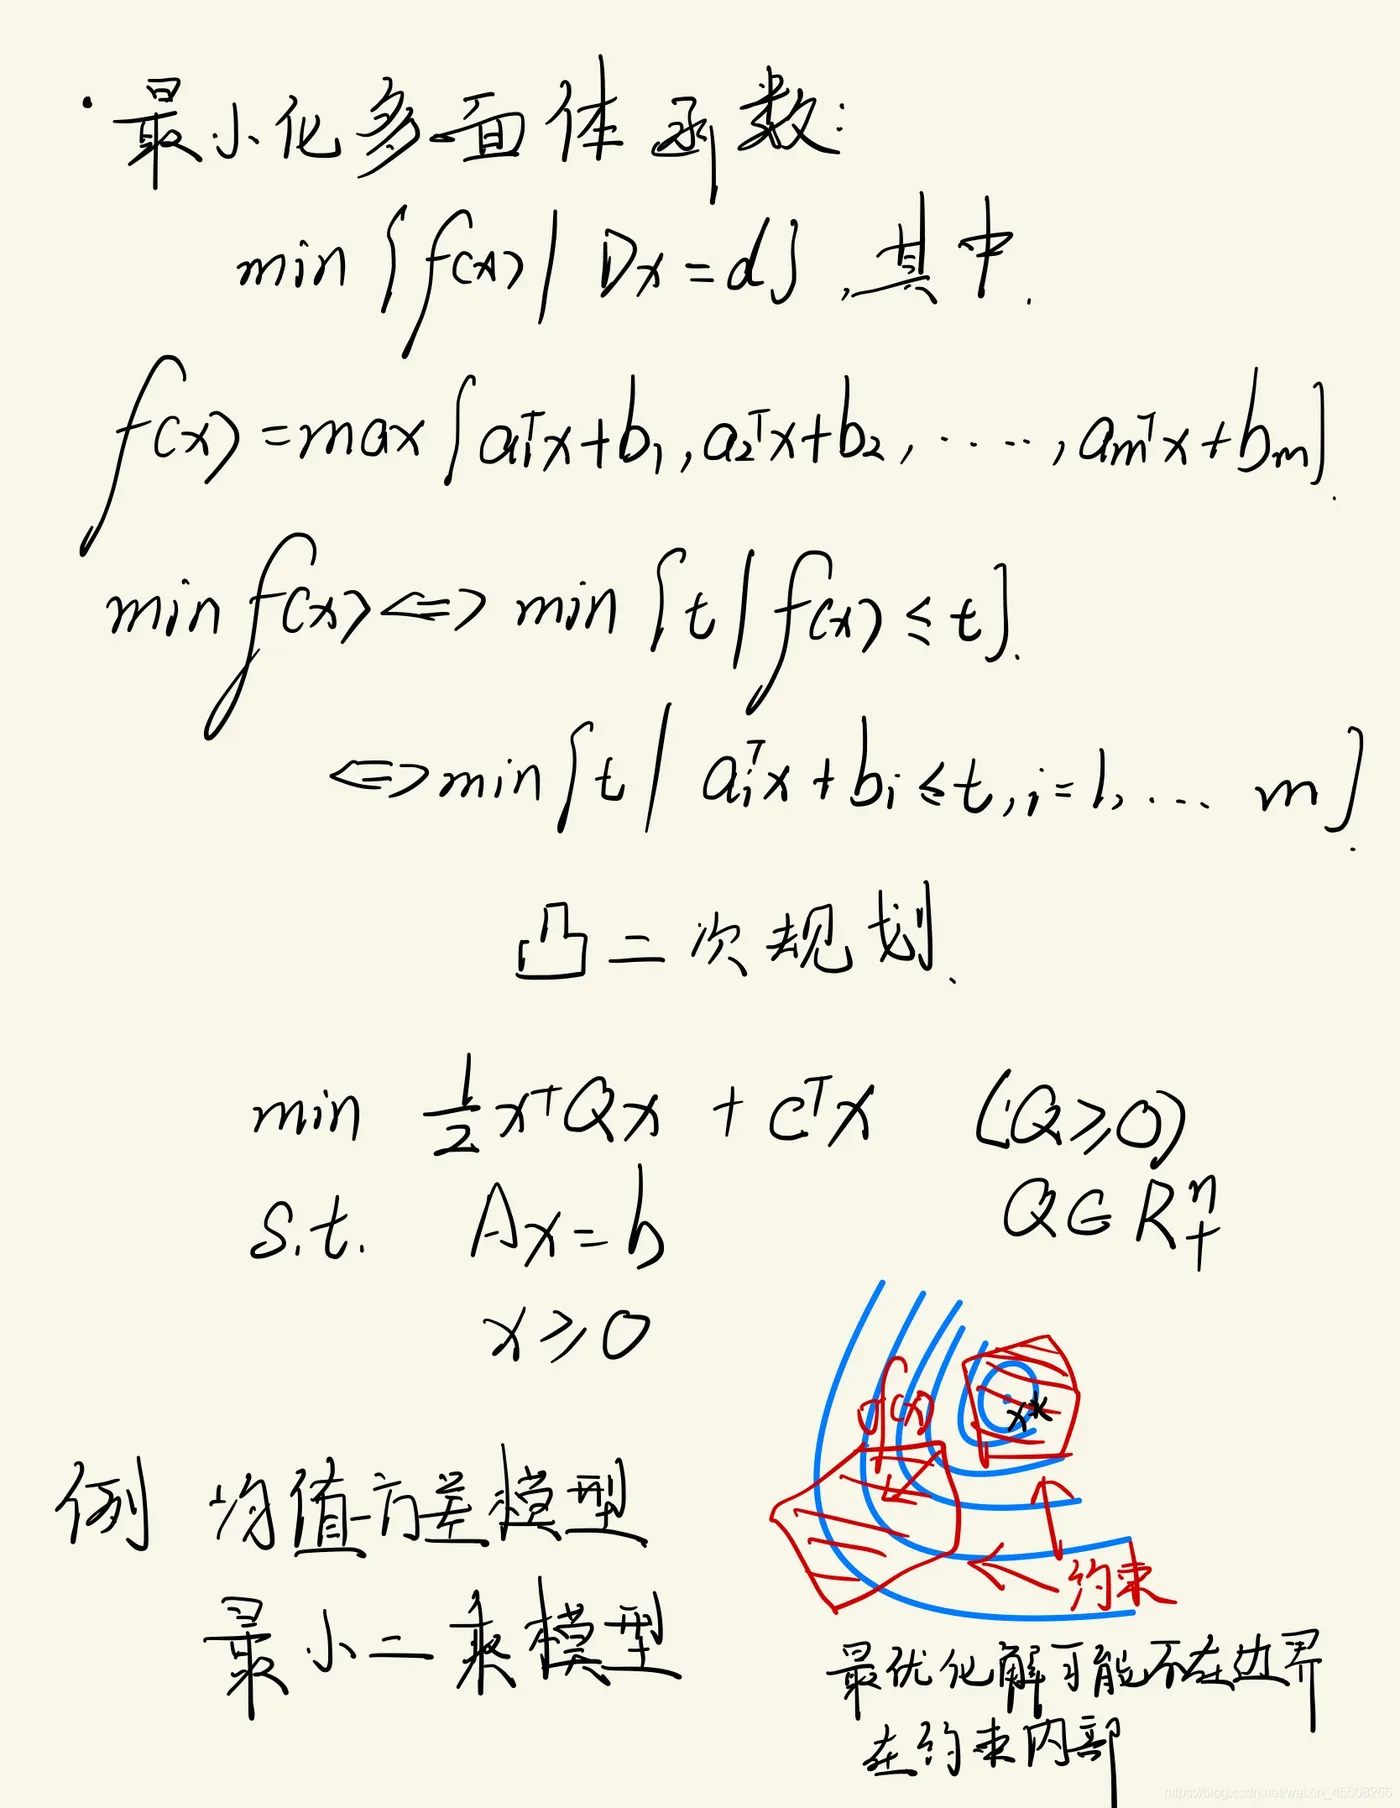 · 最小化多面体函数:
min {f(x) | Dx = d}, 其中.
f(x) = max {a₁ᵀx + b₁, a₂ᵀx + b₂, ·····, aₘᵀx + bₘ}.
min f(x) <=> min {t | f(x) ≤ t}.
<=> min {t | aᵢᵀx + bᵢ ≤ t, i = 1, ... m}.
凸二次规划.
min ½ xᵀQx + cᵀx (Q ≥ 0)
s.t. Ax = b Q ∈ Rⁿ₊
x ≥ 0
f(x)
x*
约束
例 均值-方差模型
最小二乘模型
最优化解可能不在边界
在约束内部
https://blog.csdn.net/weixin_45508265